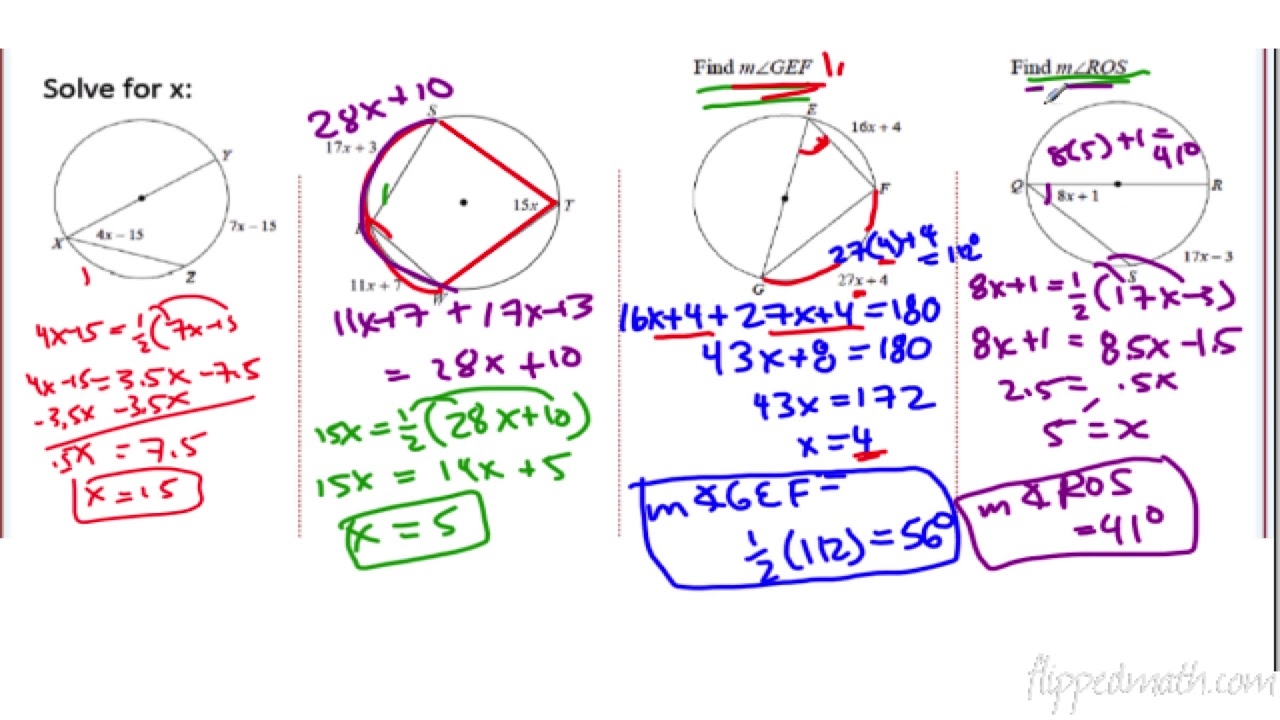 Solve for x:
Y
X
4x – 15
7x – 15
Z
4x-15 = ½(7x-15
4x-15=3.5x-7.5
-3.5x -3.5x
.5x = 7.5
x=15
28x+10
S
17x + 3
15x
T
11x + 7
W
11x+7 + 17x+3
= 28x+10
15x = ½(28x+10)
15x = 14x + 5
x = 5
Find m∠GEF
E
16x + 4
F
27(4)+4
= 112°
G
27x + 4
16x+4 + 27x+4 = 180
43x+8 = 180
43x = 172
x = 4
m∢GEF =
½(112) = 56°
Find m∠ROS
8(5)+1=
41°
Q
8x + 1
R
17x – 3
S
8x+1 = ½(17x-3)
8x+1 = 8.5x-1.5
2.5 = .5x
5 = x
m∢ROS
=41°
flippedmath.com